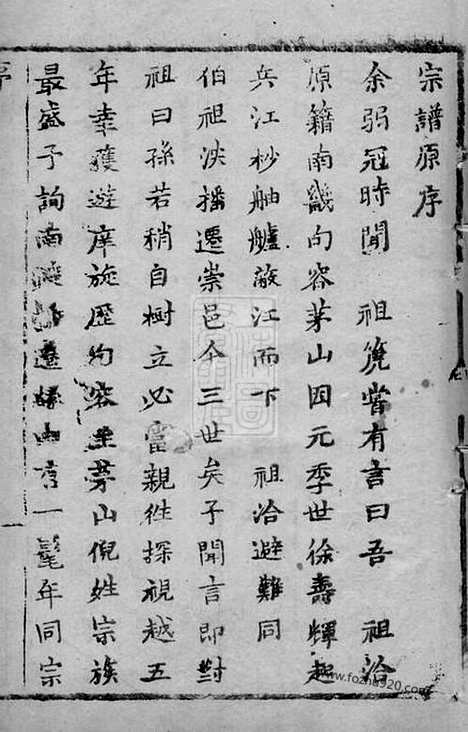 宗譜原序
余弱冠時聞　祖篼嘗有言曰吾　祖洽
原籍南畿句容茅山因元季世徐壽輝起
兵江杪舳艫蔽江而下　祖洽避難同
伯祖泱播遷崇邑今三世矣予聞言即對
祖曰孫若稍自樹立必當親往探視越五
年幸獲遊庠旋歷句容至茅山倪姓宗族
最盛予詢南遷由言一髦年同宗
序
一
www.fozhu920.com